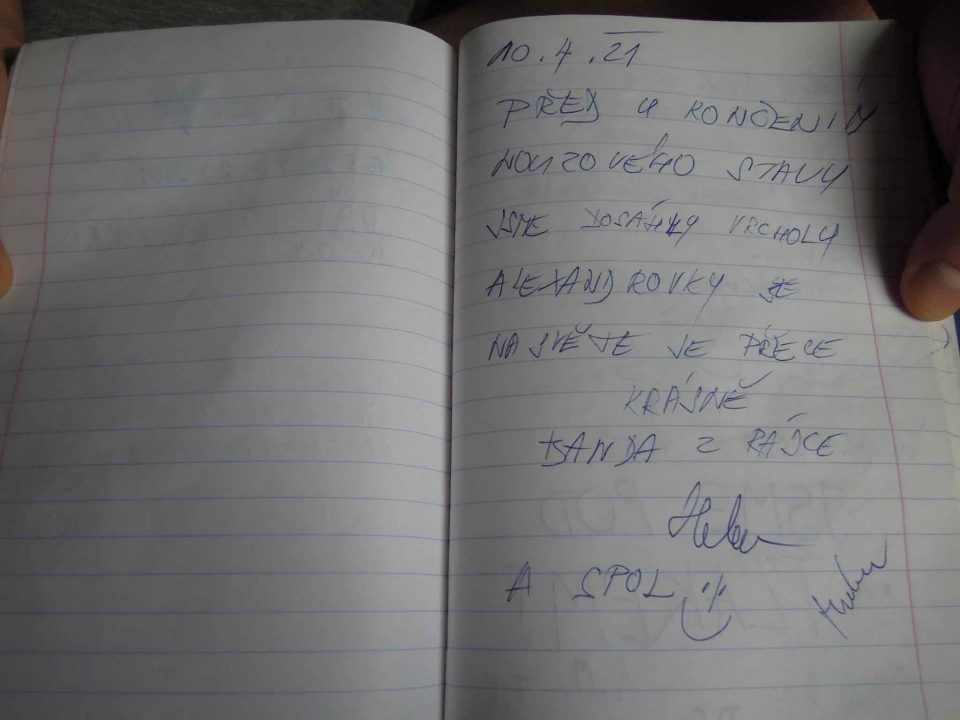 10.4.21
PŘED UKONČENÍM
NOUZOVÉHO STAVU
JSME DOSÁHLY VRCHOLU
ALEXANDROVKY
NA SVĚTE JE PŘECE
KRÁSNĚ
BANDA Z RÁJCE
A SPOL :)